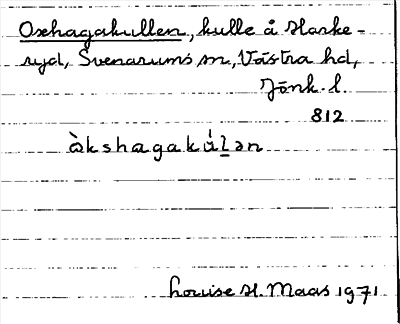 Oxhagakullen, kulle å Harke-
ryd, Svenarums sn, Västra hd,
Jönk. l.
812
àkshagakúl̲ən
Louise H. Maas 1971